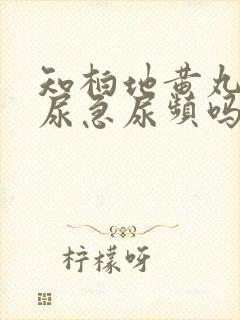 知柏地黄丸
尿急尿频吗
柠檬呀